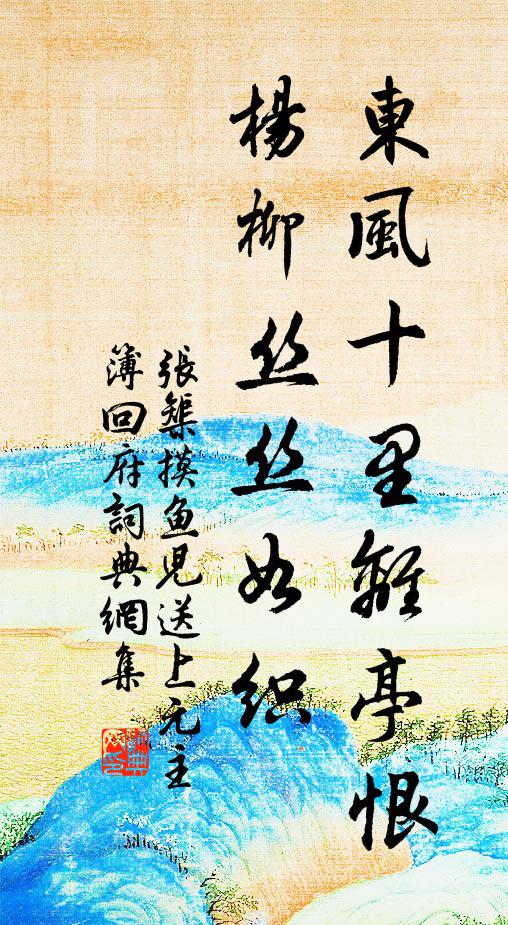 東風十里離亭恨
楊柳丝丝如织
張榘摸鱼兒送上元主
簿回府詞典網集